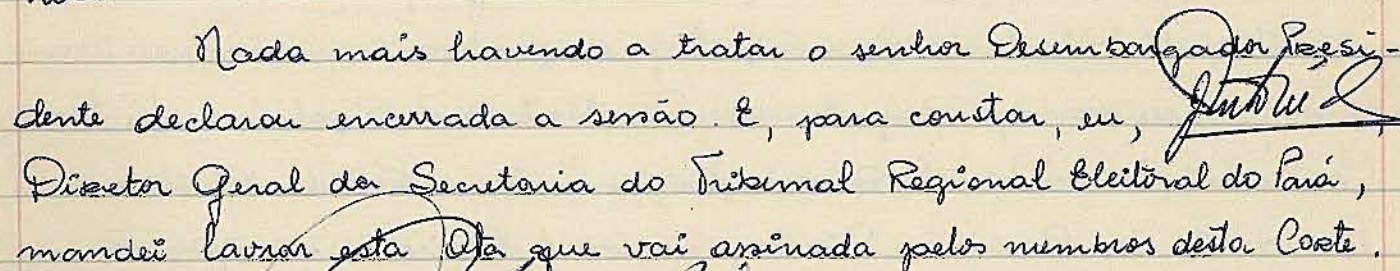 Nada mais havendo a tratar o senhor Desembargador Presi-
dente declarou encerrada a sessão. E, para constar, eu,
Diretor Geral da Secretaria do Tribunal Regional Eleitoral do Pará,
mandei lavrar esta Ata que vai assinada pelos membros desta Corte.